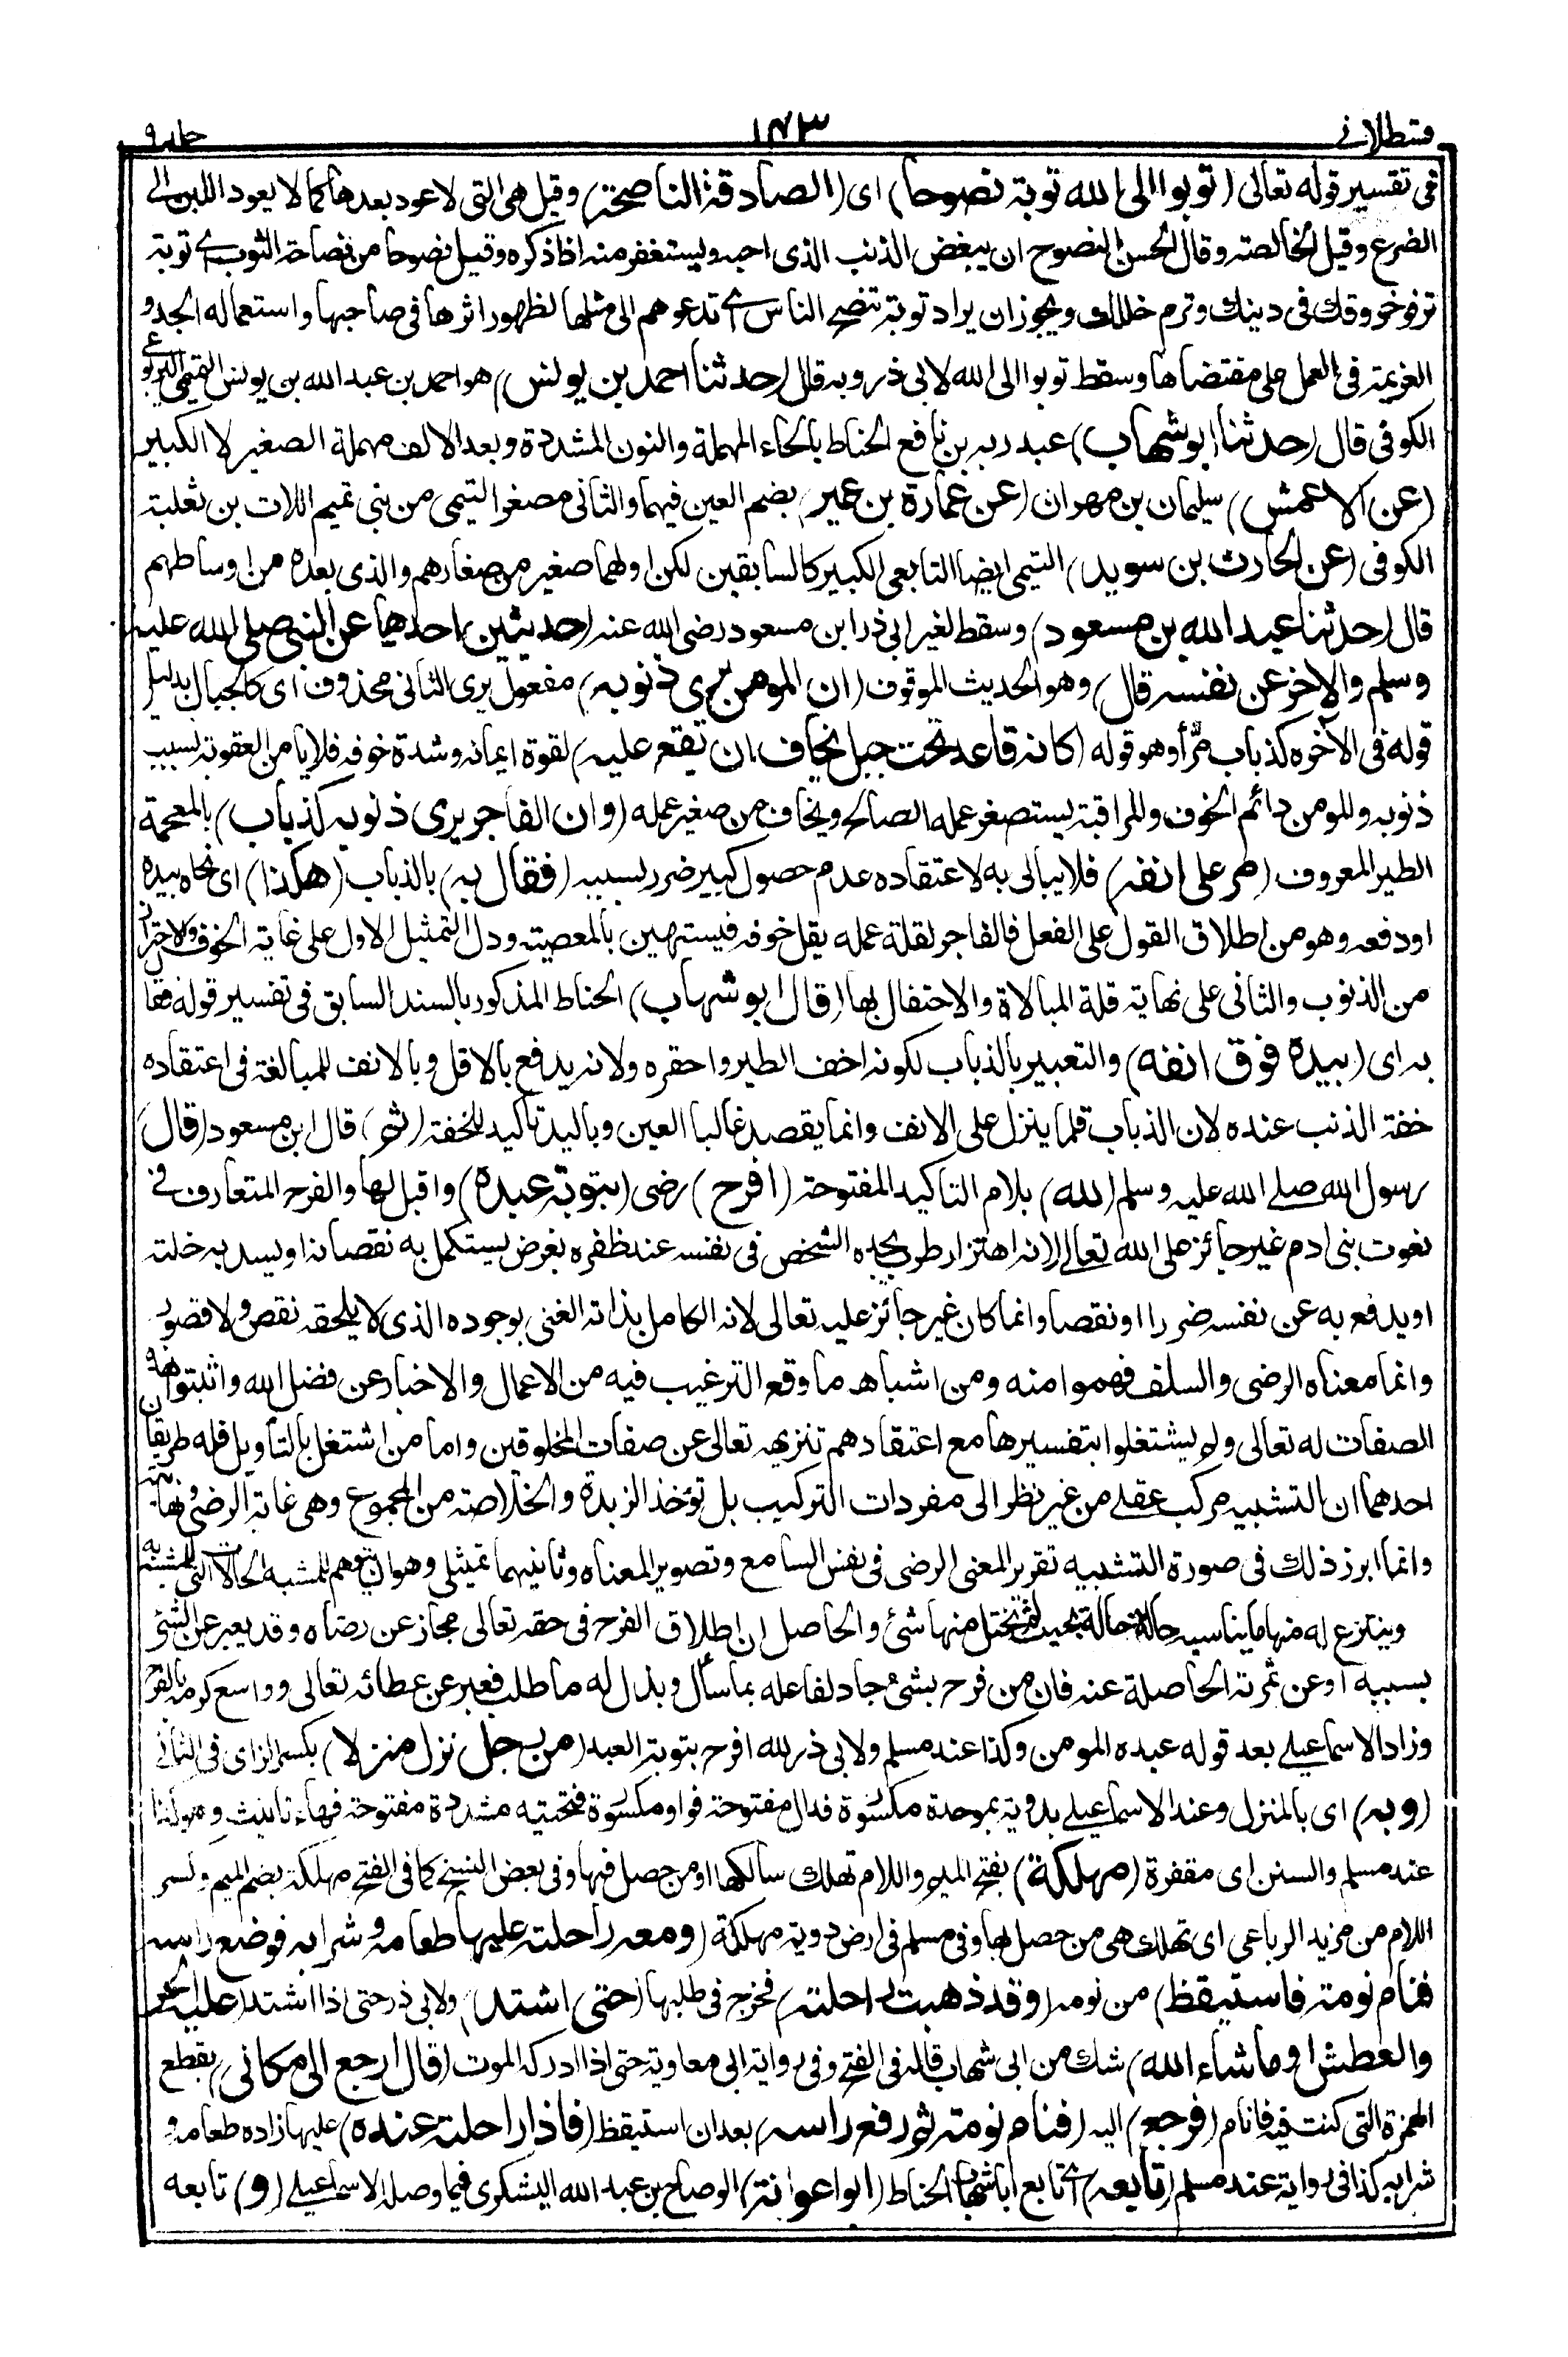 قسطلانے ١٧٣ جلد ٩
فی تفسیر قوله تعالی (توبوا الی الله توبة نصوحا) ای (الصادقة الناصحة) وقیل هی التی لا عود بعدها کما لا یعود اللبن الی
الضرع وقیل الخالصة وقال الحسن النصوح ان یبغض الذنب الذی احبه ویستغفر منه اذا ذکره وقیل نصوحا من نصاحة الثوب ای توبة
ترفو خروقك فی دینك وترم خللك ویجوز ان یراد توبة تنصح الناس ای تدعوهم الی مثلها لظهور اثرها فی صاحبها واستعماله الجد و
العزیمة فی العمل علی مقتضاها وسقط توبوا الی الله لابی ذر وبه قال (حدثنا احمد بن یونس) هو احمد بن عبد الله بن یونس التمیمی الیربوعی
الکوفی قال (حدثنا ابو شهاب) عبد ربه بن نافع الحناط بالحاء المهملة والنون المشددة وبعد الالف مهملة الصغیر لا الکبیر
(عن الاعمش) سلیمان بن مهران (عن عمارة بن عمیر) بضم العین فیهما والثانی مصغر التیمی من بنی تمیم اللات بن ثعلبة
الکوفی (عن الحارث بن سوید) التیمی ایضا التابعی الکبیر کالسابقین لکن اولهما صغیر من صغارهم والذی بعده من اوساطهم
قال (حدثنا عبد الله بن مسعود) وسقط لغیر ابی ذر ابن مسعود رضی الله عنه (حدیثین احدهما عن النبی صلی الله علیه
وسلم والاخر عن نفسه قال) وهو الحدیث الموقوف (ان المومن یری ذنوبه) مفعول یری الثانی محذوف ای کالجبال بدلیل
قوله فی الآخره کذباب مر أو هو قوله (کانه قاعد تحت جبل یخاف ان یقع علیه) لقوة ایمانه وشدة خوفه فلا یامن العقوبة بسبب
ذنوبه والمومن دائم الخوف والمراقبة یستصغر عمله الصالح ویخاف من صغیر عمله (وان الفاجر یری ذنوبه کذباب) بالمعجمة
الطیر المعروف (مر علی انفه) فلا یبالی به لاعتقاده عدم حصول کبیر ضرر بسببه (فقال به) بالذباب (هکذا) ای نحاه بیده
او دفعه وهو من اطلاق القول علی الفعل فالفاجر لقلة عمله یقل خوفه فیستهین بالمعصیة ودل التمثیل الاول علی غایة الخوف والاحتراز
من الذنوب والثانی علی نهایة قلة المبالاة والاحتفال بها (قال ابو شهاب) الحناط المذکور بالسند السابق فی تفسیر قوله فقال
به ای (بیده فوق انفه) والتعبیر بالذباب لکونه اخف الطیر واحقره ولانه یدفع بالاقل وبالانف للمبالغة فی اعتقاده
خفة الذنب عنده لان الذباب قلما ینزل علی الانف وانما یقصد غالبا العین وبالید تاکید للخفة (ثم) قال ابن مسعود (قال)
رسول الله صلے الله علیه وسلم (لله) بلام التاکید المفتوحة (افرح) رضی (بتوبة عبده) واقبل لها والفرح المتعارف فی
نعوت بنی ادم غیر جائز علی الله تعالی لانه اهتزاز طرب یجده الشخص فی نفسه عند ظفره بغرض یستکمل به نقصانه او یسد به خلته
او یدفع به عن نفسه ضررا او نقصا وانما کان غیر جائز علیه تعالی لانه الکامل بذاته الغنی بوجوده الذی لا یلحقه نقص ولا قصور
وانما معناه الرضی والسلف فهموا منه ومن اشباهه ما وقع الترغیب فیه من الاعمال والاخبار عن فضل الله واثبتوا هذه
الصفات له تعالی ولم یشتغلوا بتفسیرها مع اعتقادهم تنزیهه تعالی عن صفات المخلوقین واما من اشتغل بالتاویل فله طریقان
احدهما ان التشبیه مرکب عقلے من غیر نظر الی مفردات الترکیب بل تؤخذ الزبدة والخلاصة من المجموع وهی غایة الرضی ونهایته
وانما ابرز ذلك فی صورة التشبیه تقریر المعنی الرضی فی نفس السامع وتصویر المعناه وثانیهما تمثیلی وهو ان یتوهم للمشبه الحالات التی للمشبه به
وینتزع له منها ما یناسبه حالة حالة بحیث لم یختل منها شئ والحاصل ان اطلاق الفرح فی حقه تعالی مجاز عن رضاه وقد یعبر عن الشئ
بسببه او عن ثمرته الحاصلة عنه فان من فرح بشئ جاد لفاعله بما سأل وبذل له ما طلب فعبر عن عطائه تعالی وواسع کرمه بالفرح
وزاد الاسماعیلے بعد قوله عبده المومن وکذا عند مسلم ولابی ذر لله افرح بتوبة العبد (من رجل نزل منزلا) بکسر الزای فی الثانی
(وبه) ای بالمنزل وعند الاسماعیلے بدویة بموحدة مکسورة فدال مفتوحة فواو مکسورة فتحتیة مشددة مفتوحة فهاء تانیث وهو کذا
عند مسلم والسنن ای مقفرة (مهلکة) بفتح المیم واللام تهلك سالکها او من حصل فیها وفی بعض النسخ کما فی الفتح مهلکة بضم المیم وکسر
اللام من مزید الرباعی ای تهلك هی من حصل بها وفی مسلم فی ارض دویة مهلکة (ومعه راحلته علیها طعامه وشرابه فوضع راسه
فنام نومة فاستیقظ) من نومه (وقد ذهبت راحلته) فخرج فی طلبها (حتی اشتد) ولابی ذر حتی اذا اشتد (علیه الحر
والعطش او ما شاء الله) شك من ابی شهاب قاله فی الفتح وفی روایة ابی معاویة حتی اذا ادرکه الموت (قال ارجع الی مکانی) بقطع
الهمزة التی کنت فیه فانام (فرجع) الیه (فنام نومة ثم رفع راسه) بعد ان استیقظ (فاذا راحلته عنده) علیها زاده طعامه و
شرابه کذا فی روایة عند مسلم (تابعه) ای تابع أبا شهاب الحناط (ابو اعوانة) الوضاح بن عبد الله الیشکری فیما وصله الاسماعیلے (و) تابعه